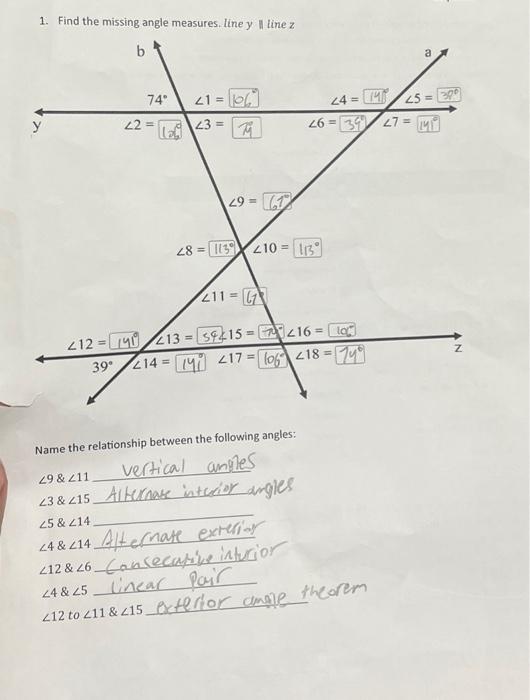 1. Find the missing angle measures. line y ∥ line z
b
a
74° ∠1 = 106° ∠4 = 141° ∠5 = 39°
y
∠2 = 106° ∠3 = 74 ∠6 = 39° ∠7 = 141°
∠9 = 67°
∠8 = 113° ∠10 = 113°
∠11 = 67°
∠12 = 141° ∠13 = ∠15 = 74° ∠16 = 106°
z
39° ∠14 = 141° ∠17 = 106° ∠18 = 74°
Name the relationship between the following angles:
∠9 & ∠11 vertical angles
∠3 & ∠15 Alternate interior angles
∠5 & ∠14
∠4 & ∠14 Alternate exterior
∠12 & ∠6 Consecutive interior
∠4 & ∠5 linear Pair
∠12 to ∠11 & ∠15 exterior angle theorem